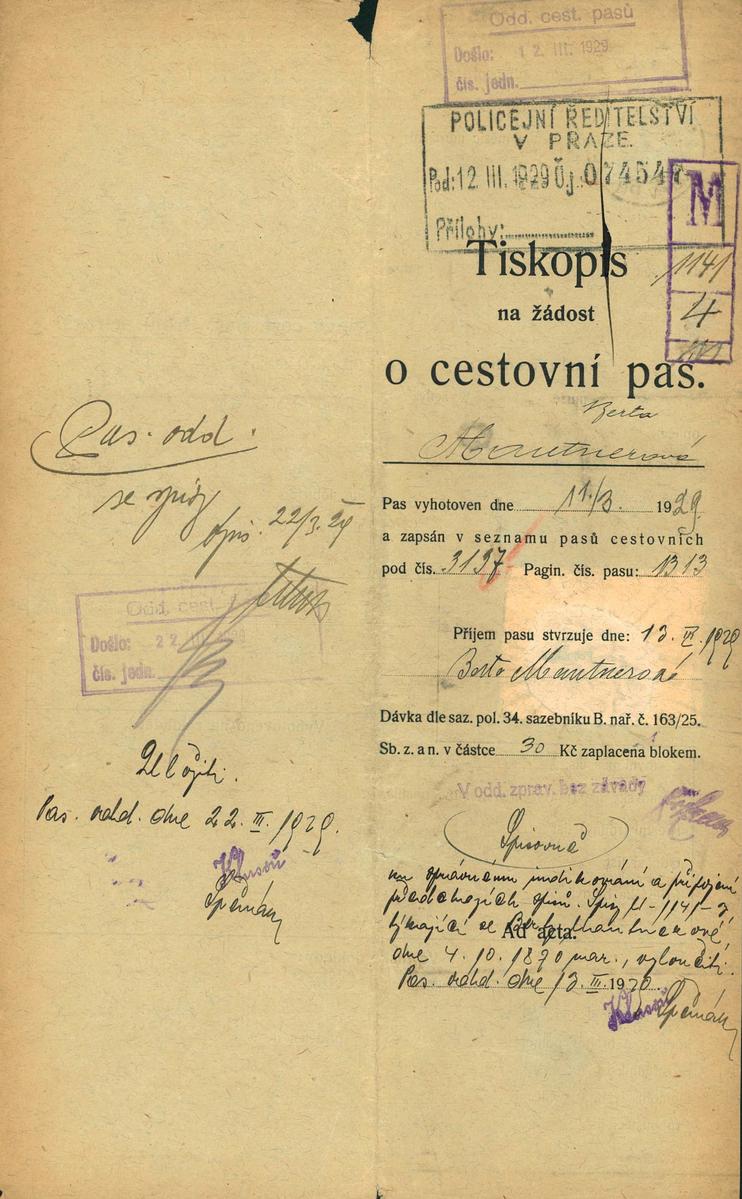 Odd. cest. pasů
Došlo: 12. III. 1929
čís. jedn.
POLICEJNÍ ŘEDITELSTVÍ
V PRAZE.
Pod: 12. III. 1929 Čj. 074547
Přílohy:
M
1141
4
Tiskopis
na žádost
o cestovní pas.
Berta
Mautnerová
Pas vyhotoven dne 11./3. 1929.
a zapsán v seznamu pasů cestovních
pod čís. 3197 Pagin. čís. pasu: 1313
Příjem pasu stvrzuje dne: 13. III. 1929
Berta Mautnerová
Dávka dle saz. pol. 34. sazebníku B. nař. č. 163/25.
Sb. z. a n. v částce 30 Kč zaplacena blokem.
V odd. zprav. bez závady
Spisovně
správnému indikování a připojení
předchozích spisů. Spis M-1141-
týkající se Berty Mautnerové,
Ad acta.
dne 4. 10. 1870 nar., vyloučiti.
Pas. odd. dne 13. III. 19
Pas. odd.
se spisy
22/3. 29
Odd. cest.
Došlo: 22. III. 1929
čís. jedn.
Uložiti.
Pas. odd. dne 22. III. 1929.